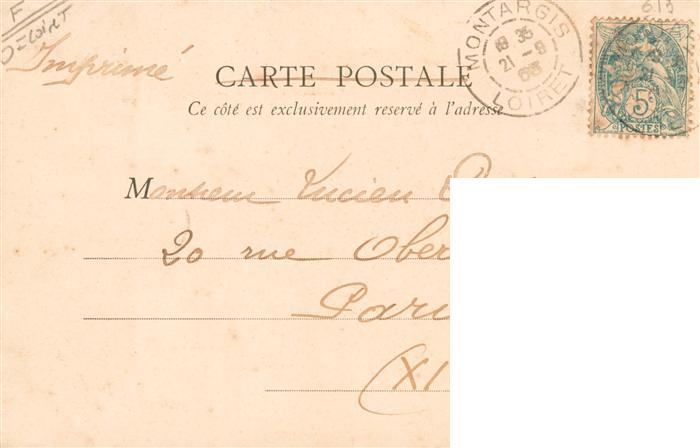 F
Loiret
613
Imprimé
MONTARGIS
18 35
21 - 9
03
LOIRET
5c
POSTES
CARTE POSTALE
Ce côté est exclusivement reservé à l'adresse
Monsieur Lucien
20 rue Ober
Pari
(XI